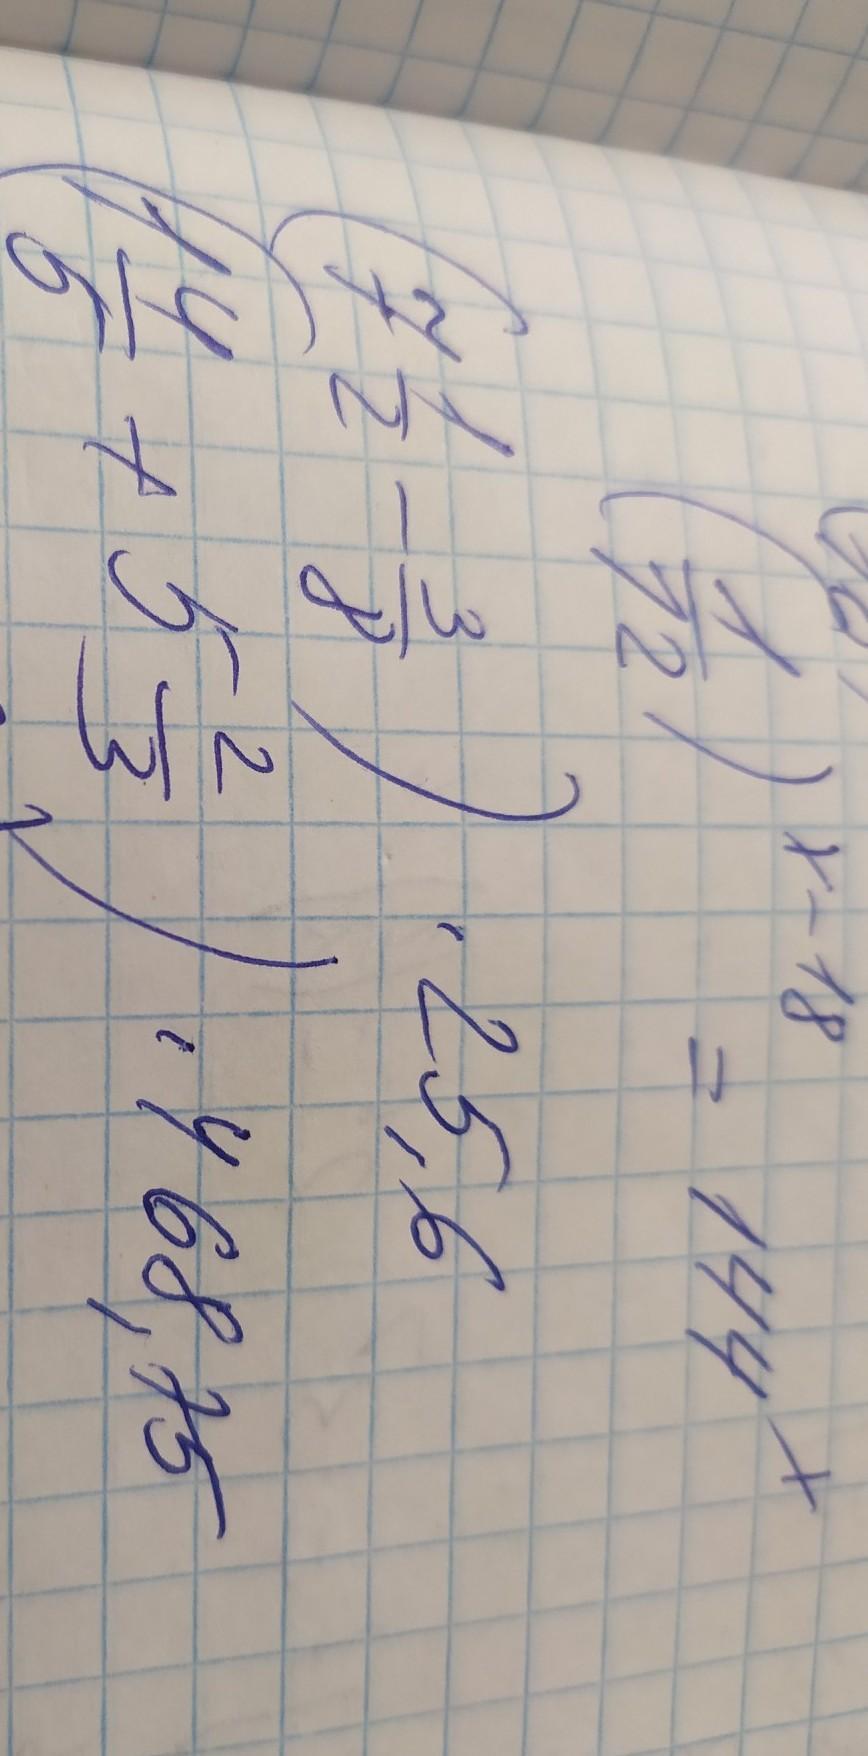 (1/12)^x-18 = 144^x
(7 1/2 - 3/8) · 25,6
(1 4/5 + 5 2/3) · 168,75